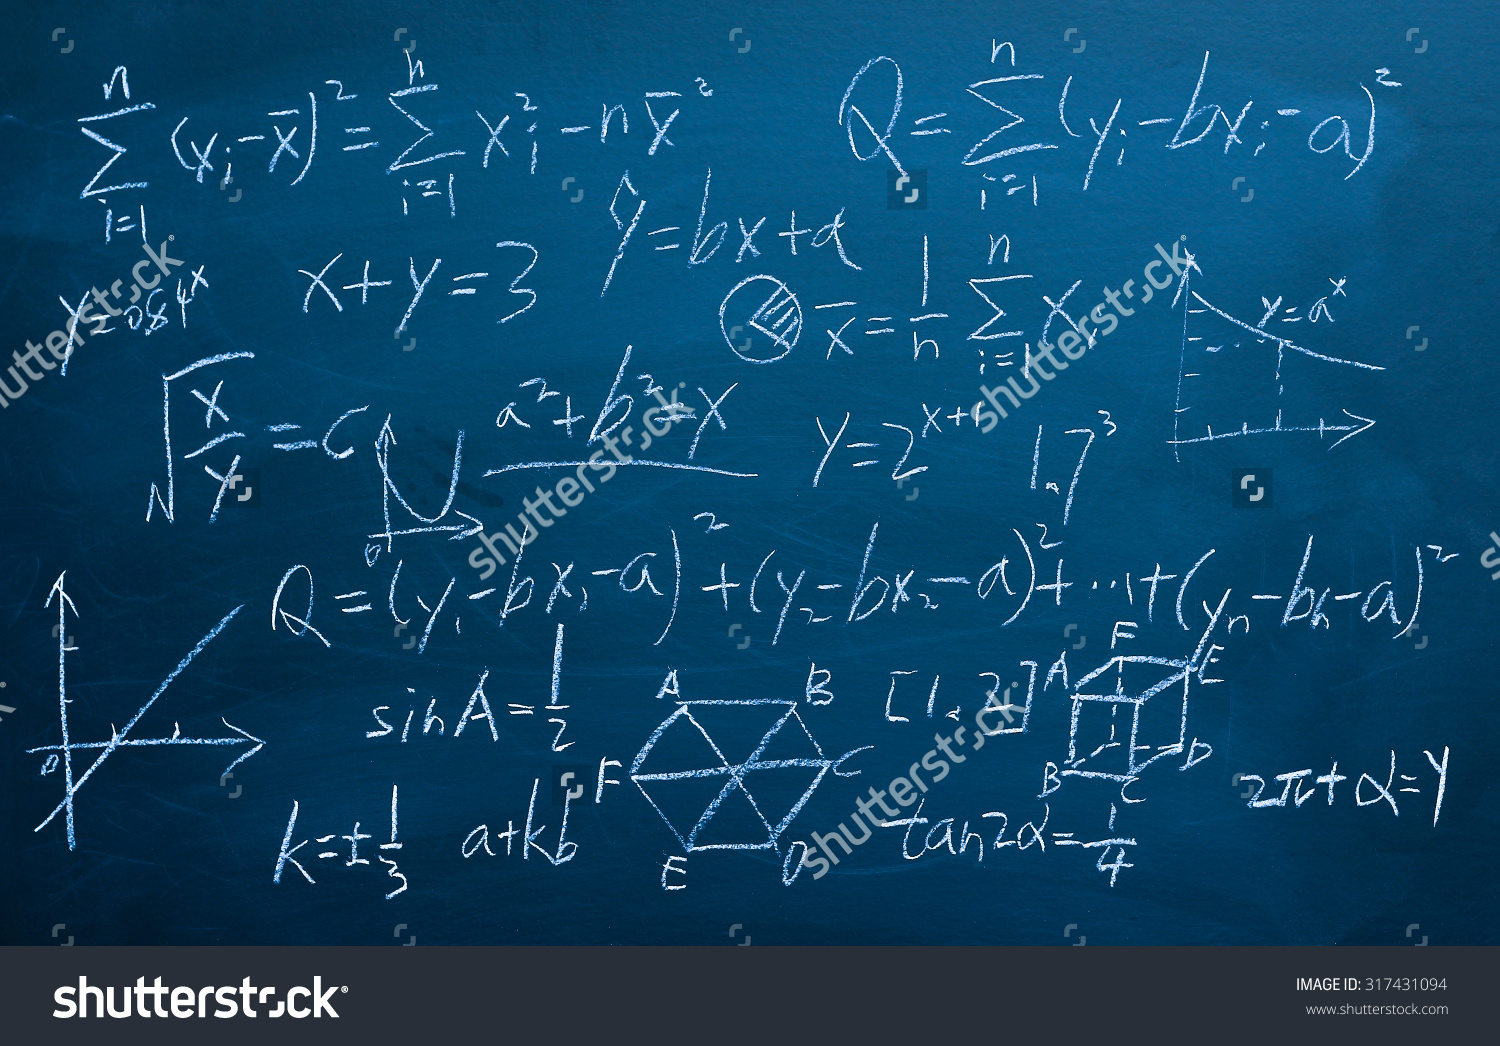 n∑i=1 (xᵢ-x̄)² = n∑i=1 xᵢ² - nx̄²
Q = n∑i=1 (yᵢ-bxᵢ-a)²
ŷ=bx+a
y=0.84ˣ
x+y=3
x̄ = 1/n n∑i=1 xᵢ
y=aˣ
√x/y = C
a²+b²=x
y=2ˣ⁺¹
1.7³
0
Q=(y₁-bx₁-a)²+(y₂-bx₂-a)²+...+(yn-bn-a)²
0
sinA=1/2
A B
F C
E D
[1,2]
F
A E
B D
C
2π+α=y
k=±1/3
a+kb
tan2α=1/4
shutterstock®
shutterstock®
shutterstock®
shutterstock®
shutterstock®
IMAGE ID: 317431094
www.shutterstock.com